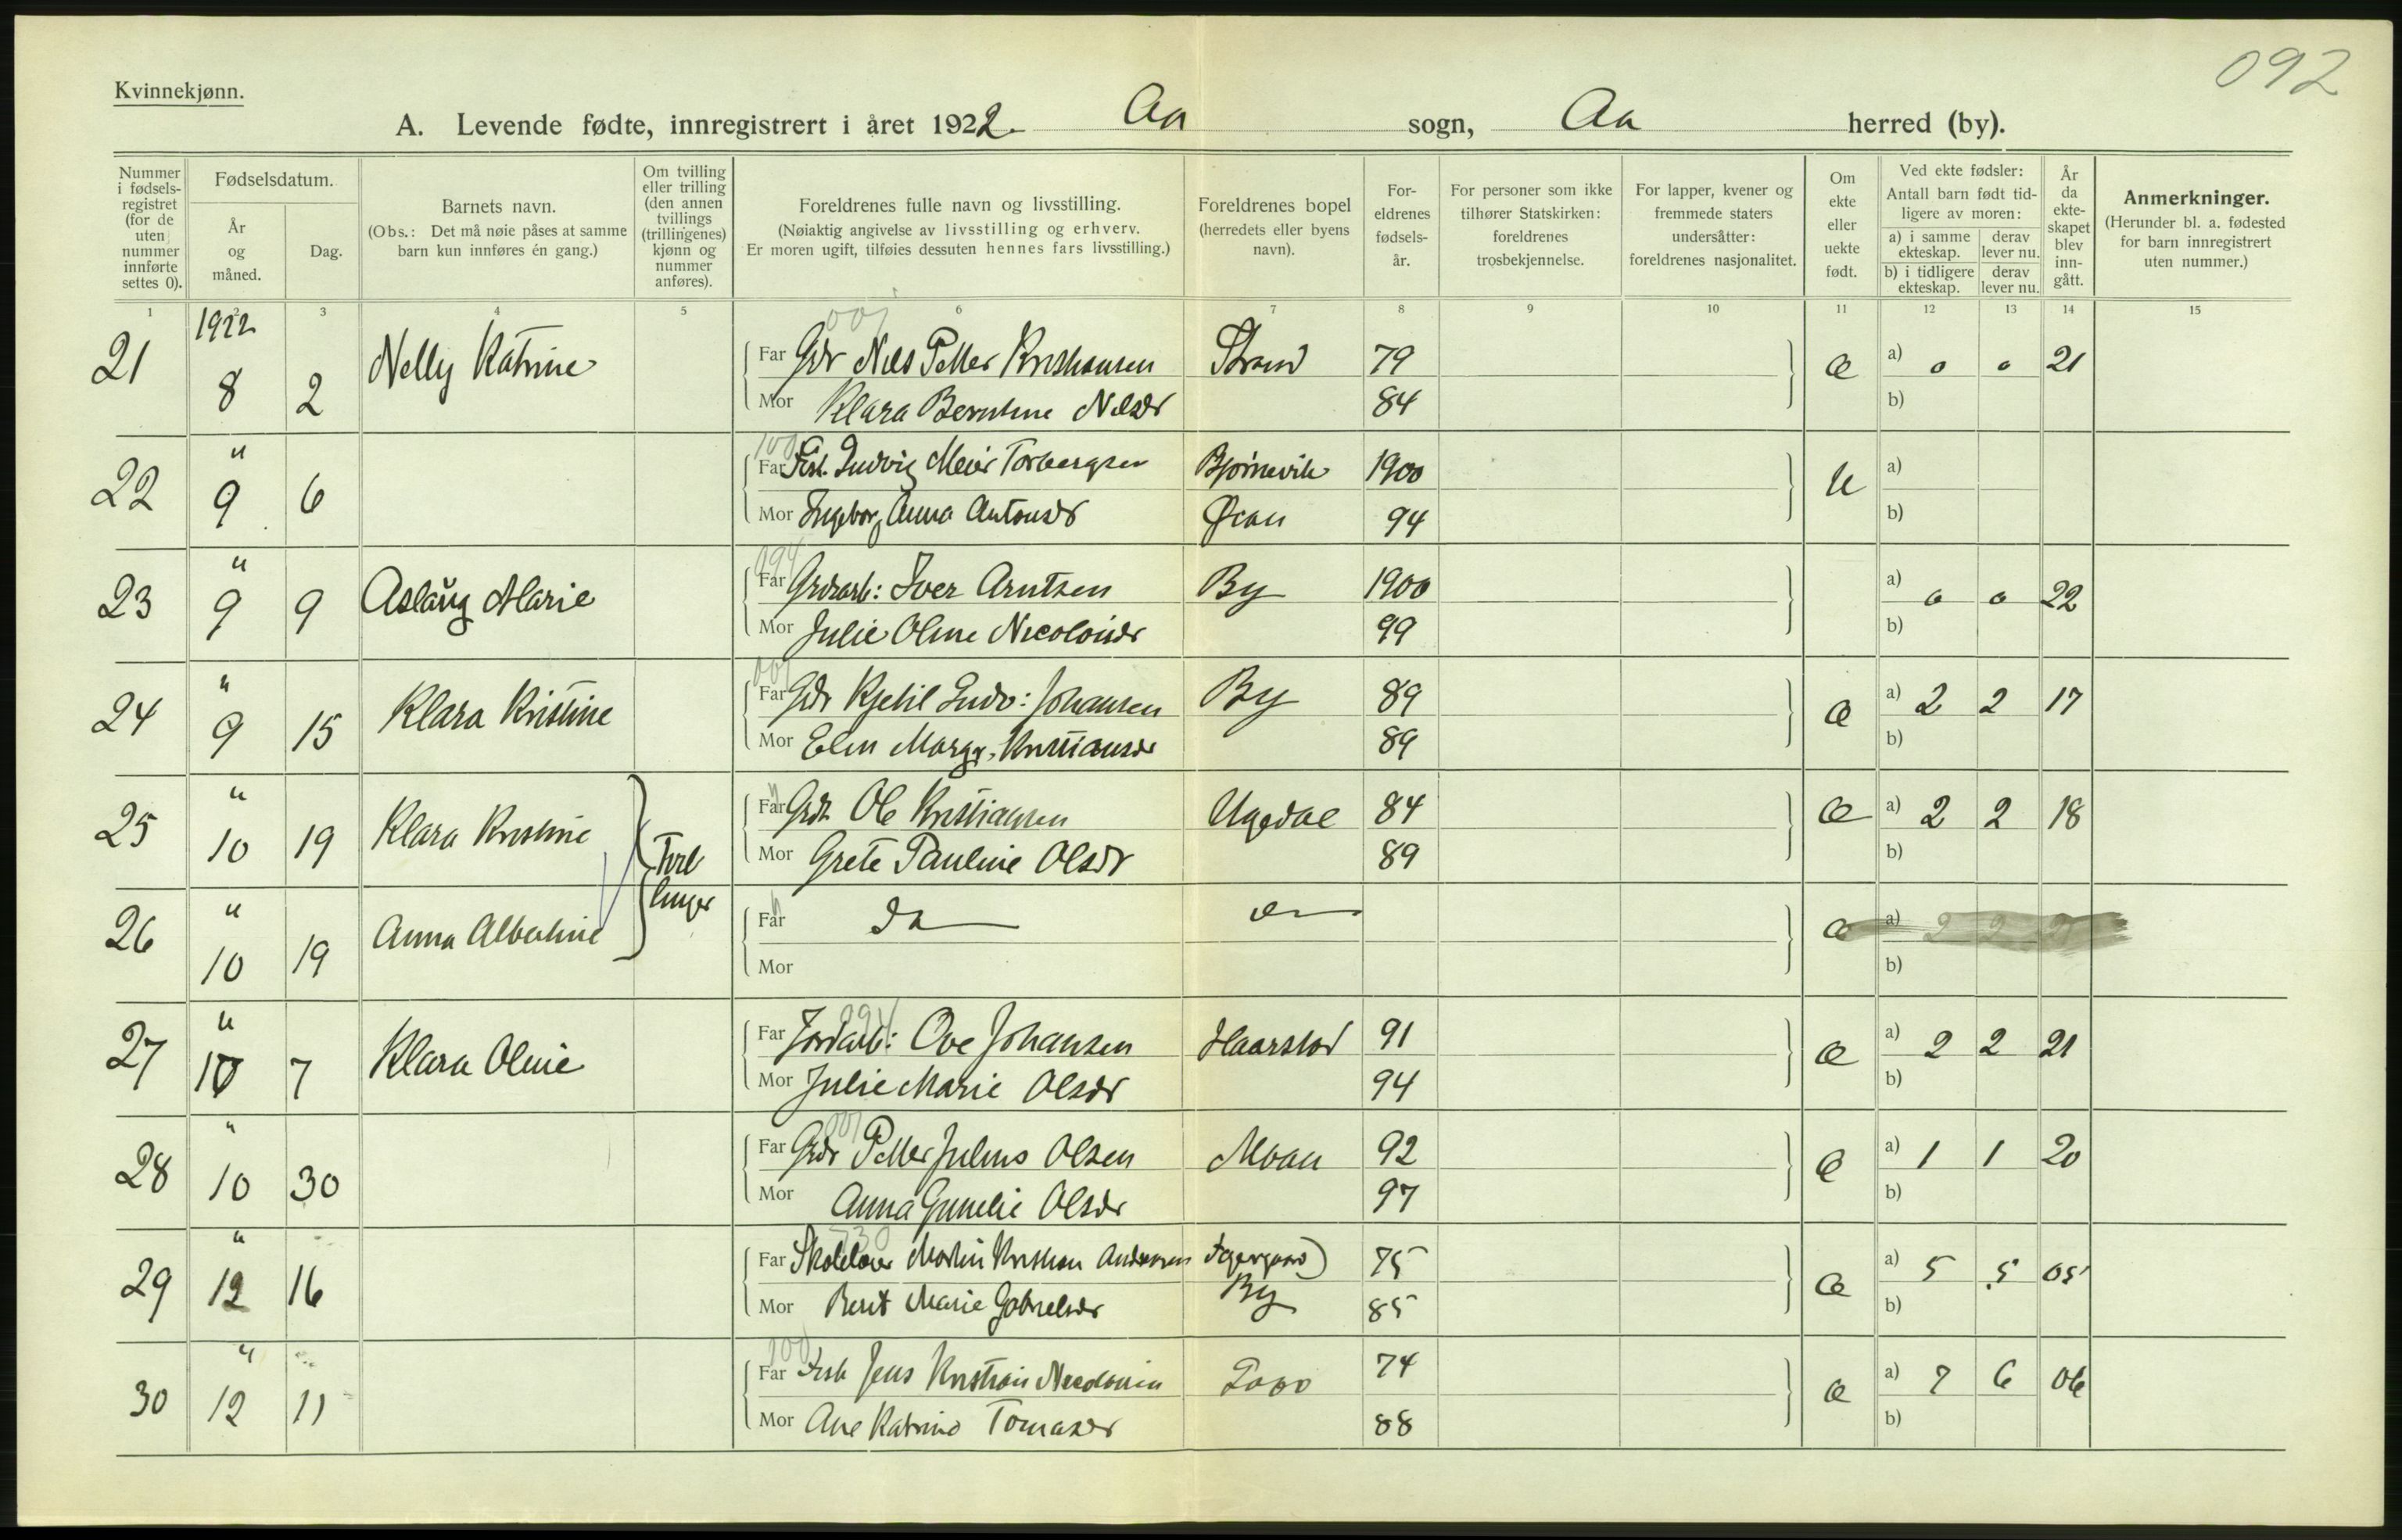 092
Kvinnekjønn.
A. Levende fødte, innregistrert i året 1922. Aa sogn, Aa herred (by).
Nummer i fødsels-registret (for de uten nummer innførte settes 0).
Fødselsdatum.
År og måned.
Dag.
Barnets navn.
(Obs.: Det må nøie påses at samme barn kun innføres én gang.)
Om tvilling eller trilling (den annen tvillings (trillingenes) kjønn og nummer anføres).
Foreldrenes fulle navn og livsstilling.
(Nøiaktig angivelse av livsstilling og erhverv.
Er moren ugift, tilføies dessuten hennes fars livsstilling.)
Foreldrenes bopel (herredets eller byens navn).
For-eldrenes fødsels-år.
For personer som ikke tilhører Statskirken: foreldrenes trosbekjennelse.
For lapper, kvener og fremmede staters undersåtter: foreldrenes nasjonalitet.
Om ekte eller uekte født.
Ved ekte fødsler:
Antall barn født tid-ligere av moren:
a) i samme ekteskap.
derav lever nu.
b) i tidligere ekteskap.
derav lever nu.
År da ekte-skapet blev inn-gått.
Anmerkninger.
(Herunder bl. a. fødested for barn innregistrert uten nummer.)
1 2 3 4 5 6 7 8 9 10 11 12 13 14 15
1922
001
21 8 2 Nelly Katrine Far Gdr Nils Petter Kristiansen Strand 79 Æ a) 0 0 21
Mor Klara Berntine Nilsdr 84 b)
100
22 " 9 6 Far Fisk. Ludvig Meier Torbergsen Bjørnevik 1900 U a)
Mor Ingeborg Anna Antonsdr Øian 94 b)
094
23 " 9 9 Aslaug Marie Far Grdrarb: Iver Arntsen By 1900 a) 0 0 22
Mor Julie Oline Nicolaisdr 99 b)
001
24 " 9 15 Klara Kristine Far Gdr Kjetil Ludv: Johansen By 89 Æ a) 2 2 17
Mor Elen Margr. Kristiansdr 89 b)
25 " 10 19 Klara Kristine Tvillinger Far Grdr Ole Kristiansen Ugedal 84 Æ a) 2 2 18
Mor Grete Pauline Olsdr 89 b)
26 " 10 19 Anna Albertine Far Do Æ a) 2 2
Mor b)
27 " 10 7 Klara Oline Far Jordarb: Ove Johansen Haarstad 91 Æ a) 2 2 21
Mor Julie Marie Olsdr 94 b)
001
28 " 10 30 Far Grdr Petter Julius Olsen Moan 92 Æ a) 1 1 20
Mor Anna Gunelie Olsdr 97 b)
29 " 12 16 Far Skolelærer Martin Kristian Andersen Fagergaard) 75 Æ a) 5 5 05
Mor Berit Marie Gabrielsdr By 85 b)
100
30 " 12 11 Far Fisk Jens Kristian 74 Æ a) 7 6 06
Mor Ane Katrine Tomasdr 88 b)